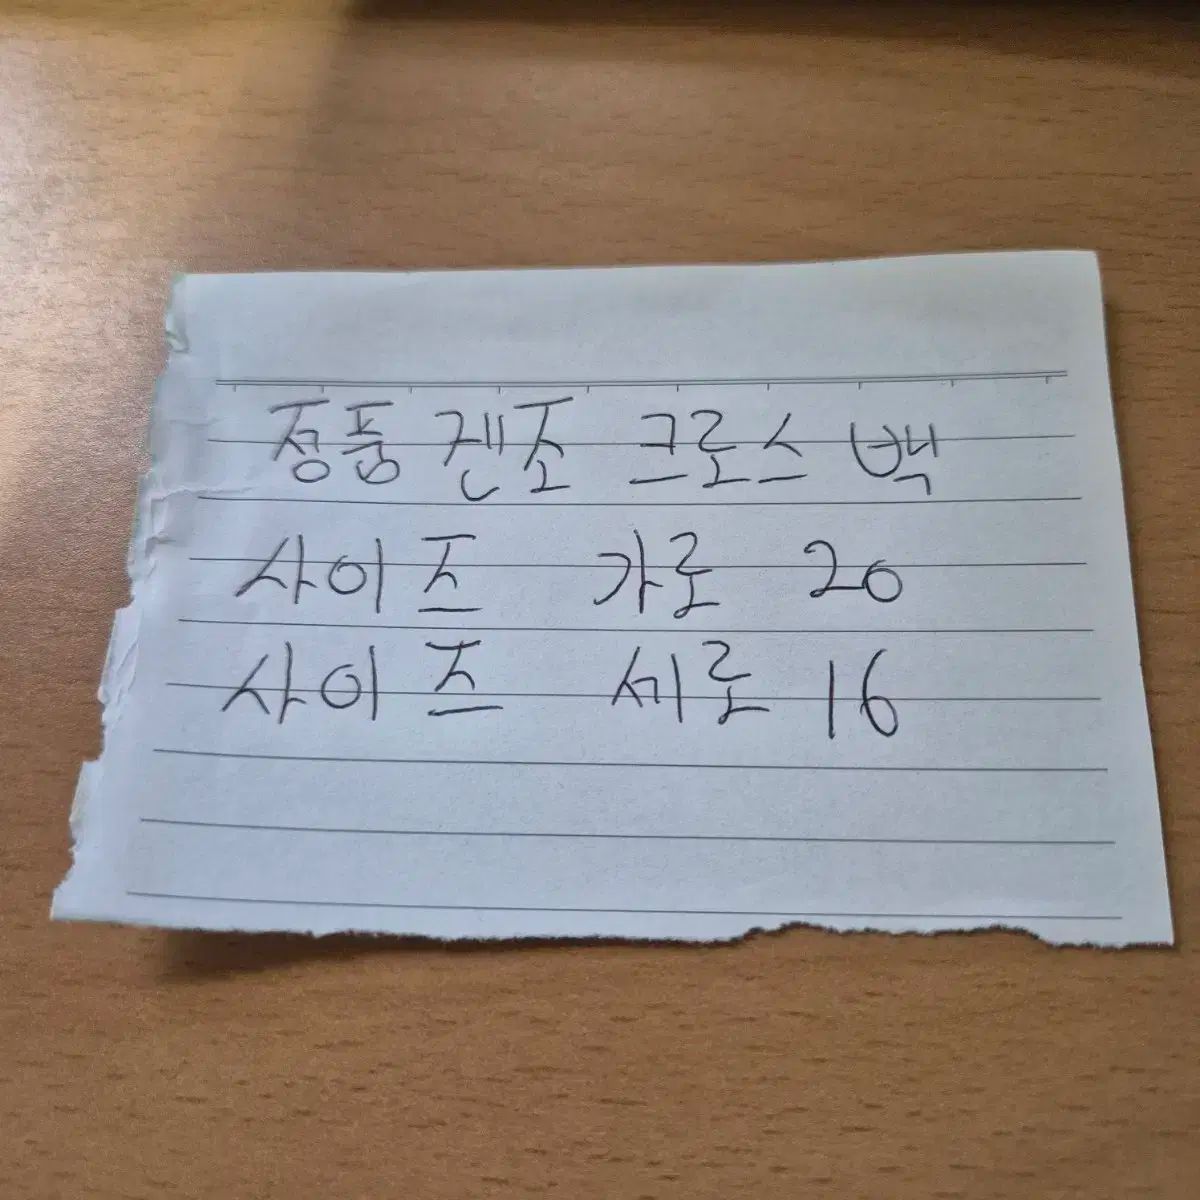 정품 겐조 크로스 백
사이즈 가로 20
사이즈 세로 16